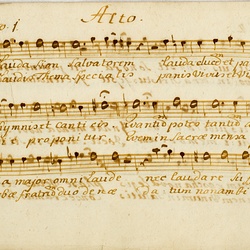 Alto.
o 1.
Lauda Sion Salvatorem Lauda ducem et pa
Laudis Thema Specialis panis vivus et vi
hymnis et canticis Quantum potes tantum a
et proponitur Quem in Sacræ mensa
a major omni laude nec laudare Su
bæ fratrum duodenæ datum non ambi